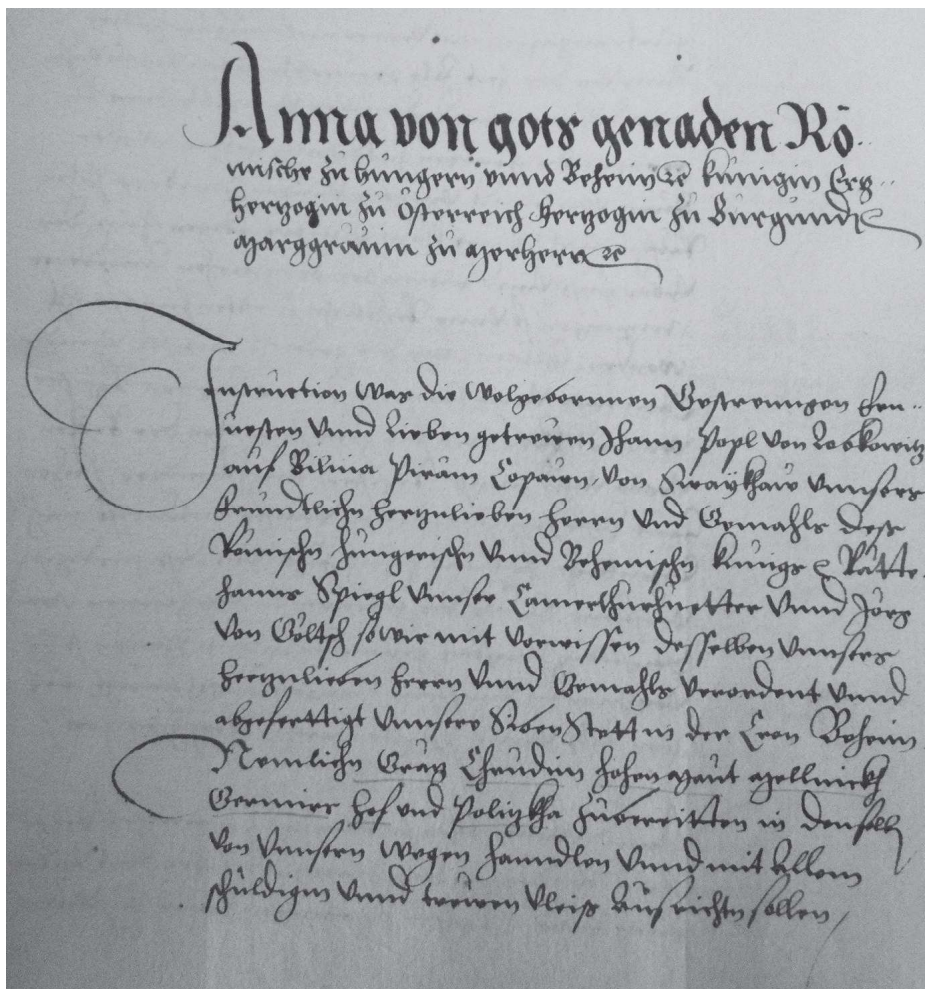 Anna von gots genaden Rö
mische zu hungern vnnd Beheim ꝛc kunigin Ertz
hertzogin zu Osterreich hertzogin zu Burgundi
Marggrauin zu Merhern ꝛc
Instruction Was die Wolgebornnen Gestrenngen Ern
uesten Vnnd Lieben getrewen Jhann Popl Von Lobkowitz
auf Bilina Piram Copaun von Swaykhaw Vnnsers
freundtlichn hertzulieben herrn Vnd Gemahls dess
Römischn hungerischn Vnnd Behemischn kunigs ꝛ Rätte
hanns Spiegl Vnnser Camerthurhuetter Vnnd Jorg
Von Göltsch so wir mit Vorwissen desselben Vnnsers
hertzulieben herrn Vnnd Gemahls Verordent Vnnd
abgeferttigt Vnnsere Siben Stett in der Cron Beheim
Nemlichn Grätz Chrudim hohenmaut Mellnickh
hof vnd Politzkha zubereitten in denselb
Von Vnnsern Wegen hanndlen Vnnd mit allem
schuldigm Vnnd trewen Vleiss ausrichtn sollen